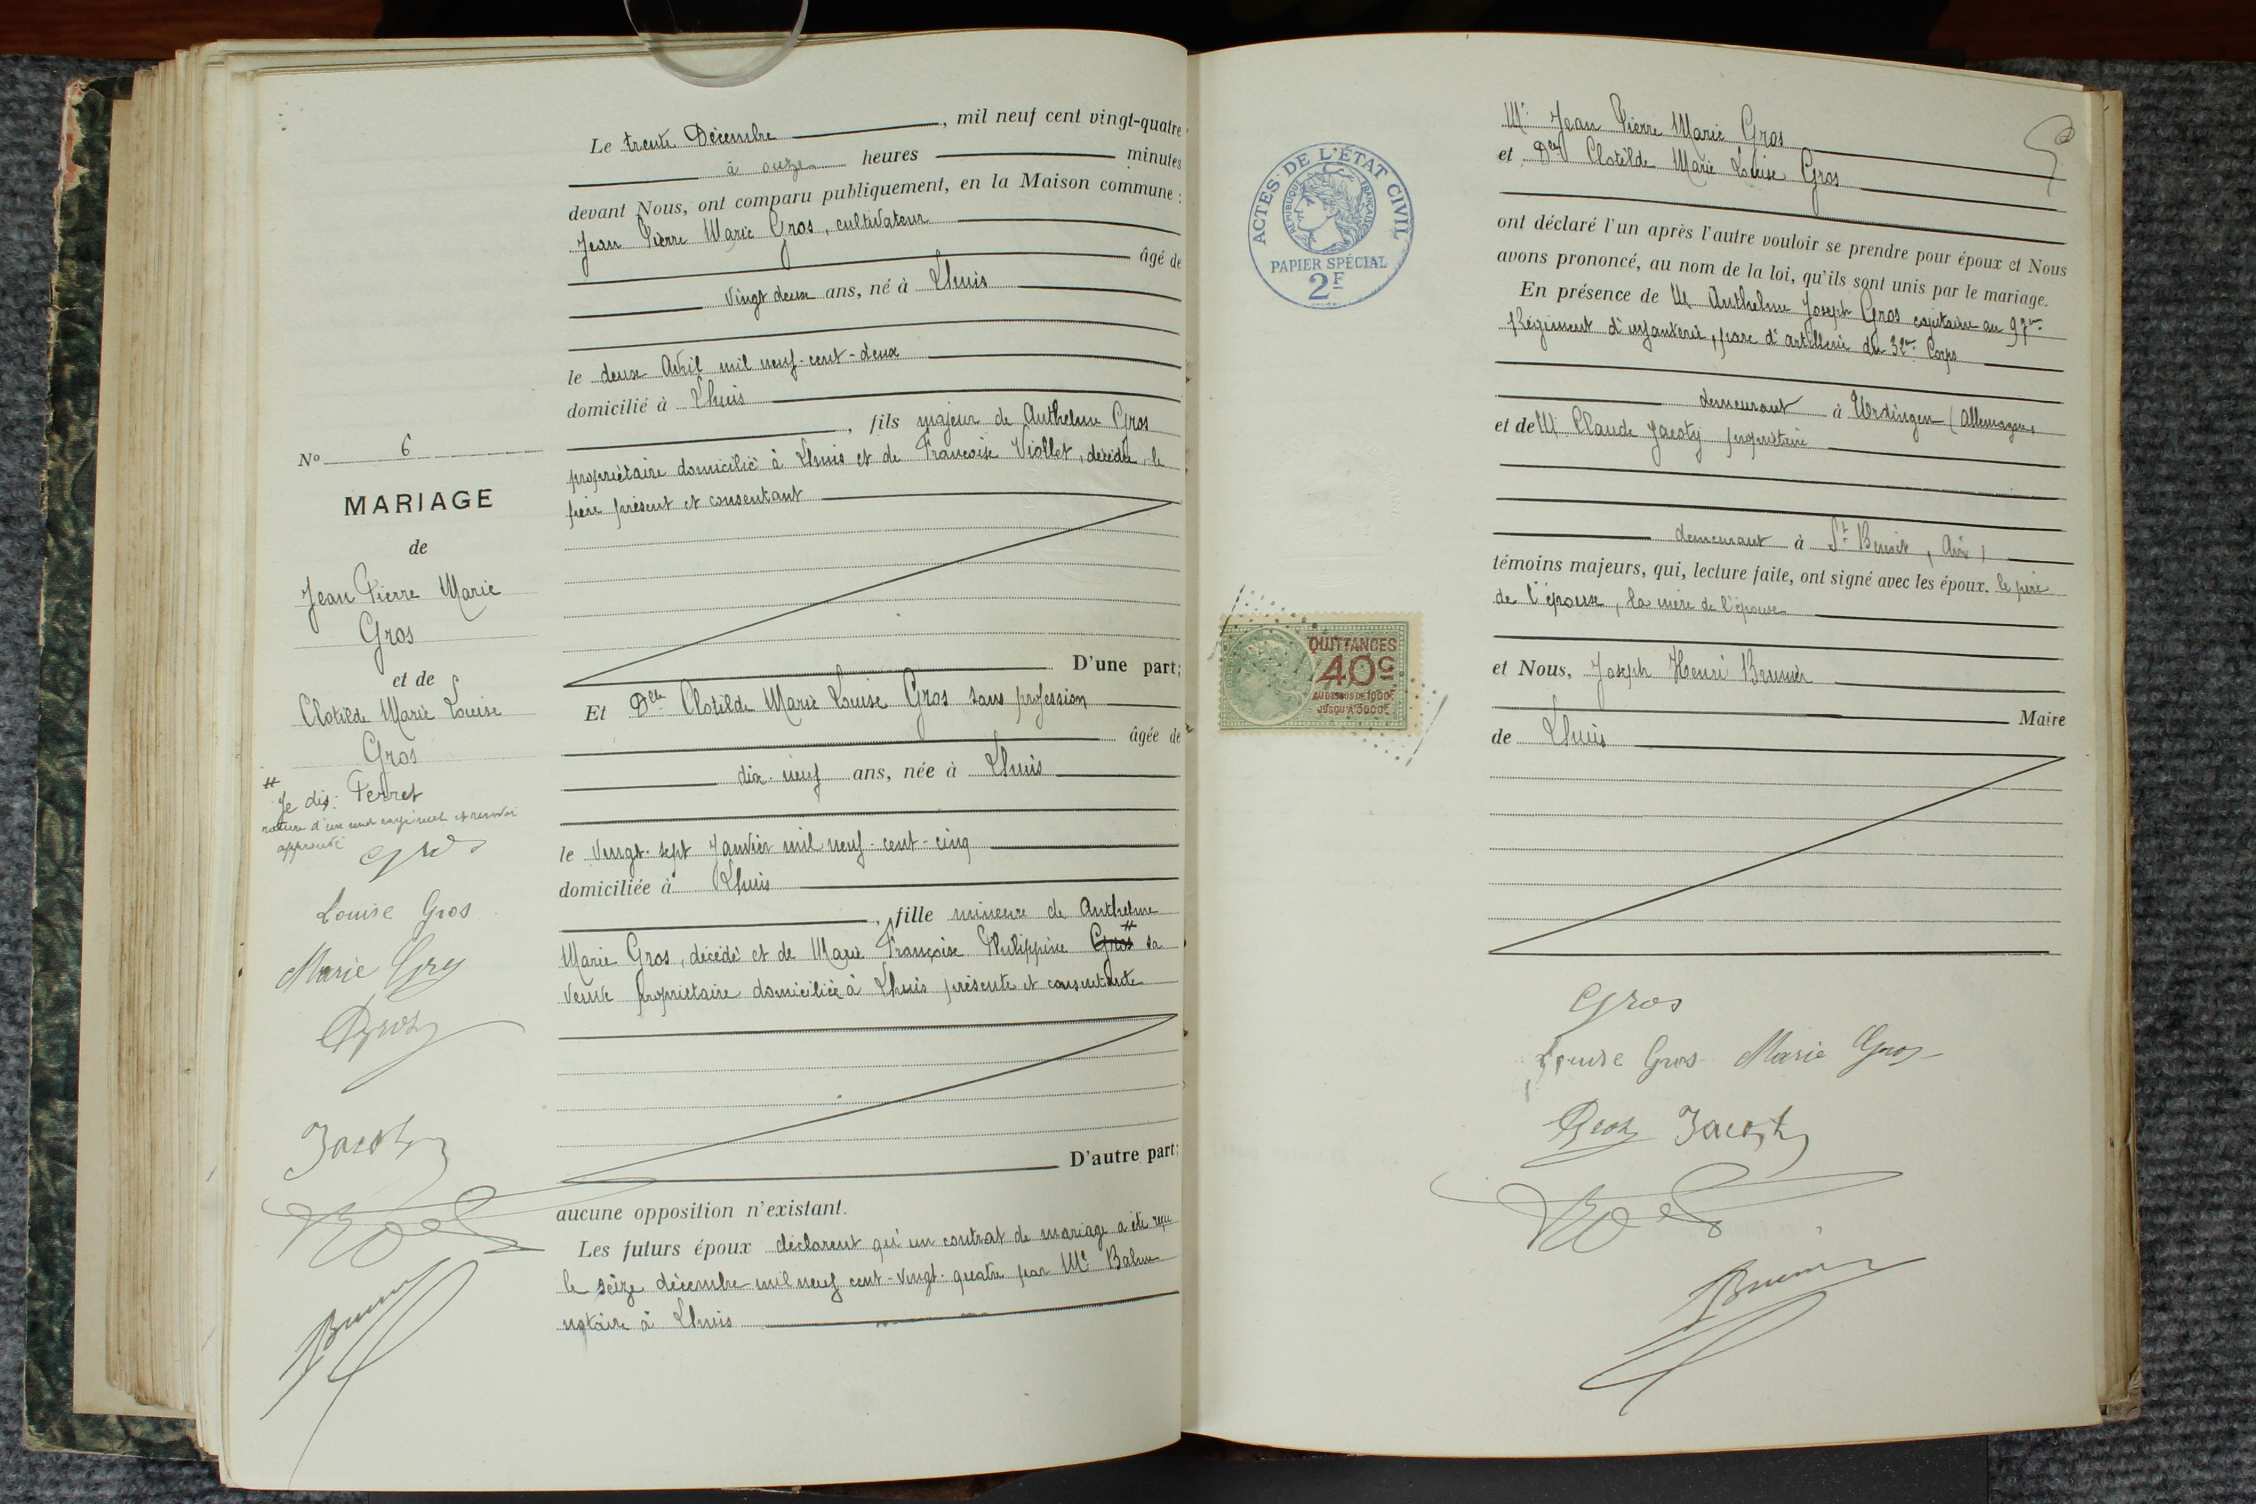 Le trente Décembre, mil neuf cent vingt-quatre
à onze heures minutes
devant Nous, ont comparu publiquement, en la Maison commune :
Jean Pierre Marie Gros, cultivateur
âgé de
vingt deux ans, né à Lhuis
le deux Avril mil neuf-cent-deux
domicilié à Lhuis
, fils majeur de Anthelme Gros
propriétaire domicilié à Lhuis et de Francoise Viollet, décédée, le
père présent et consentant
D'une part;
Et Dlle Clotilde Marie Louise Gros sans profession
âgée de
dix-neuf ans, née à Lhuis
le vingt-sept Janvier mil neuf-cent-cinq
domiciliée à Lhuis
, fille mineure de Anthelme
Marie Gros, décédé et de Marie Françoise Philippine Gros # sa
veuve propriétaire domiciliée à Lhuis présente et consentante
D'autre part;
aucune opposition n'existant.
Les futurs époux déclarent qu'un contrat de mariage a été reçu
le seize décembre mil neuf cent-vingt-quatre par Me Balme
notaire à Lhuis
No 6
MARIAGE
de
Jean Pierre Marie
Gros
et de
Clotilde Marie Louise
Gros
# Je dis: Ferret
approuvé
Gros
Louise Gros
Marie Gros
Gros
Jacoty
Brunier
ACTES DE L'ÉTAT CIVIL
RÉPUBLIQUE FRANÇAISE
PAPIER SPÉCIAL
2F
QUITTANCES
40c
AU DESSUS DE 1000F
JUSQU'A 3000F
Mr Jean Pierre Marie Gros
et Dlle Clotilde Marie Louise Gros
ont déclaré l'un après l'autre vouloir se prendre pour époux et Nous
avons prononcé, au nom de la loi, qu'ils sont unis par le mariage.
En présence de M Anthelme Joseph Gros capitaine au 97me
Régiment d'infanterie, parc d'artillerie du 32me Corps
demeurant à Urdingen (Allemagne)
et de M. Claude Jacoty propriétaire
demeurant à St Benoit, Ain)
témoins majeurs, qui, lecture faite, ont signé avec les époux. le père
de l'époux, la mère de l'épouse
et Nous, Joseph Henri Brunier
Maire
de Lhuis
Gros
Louise Gros Marie Gros
Gros Jacoty
Brunier